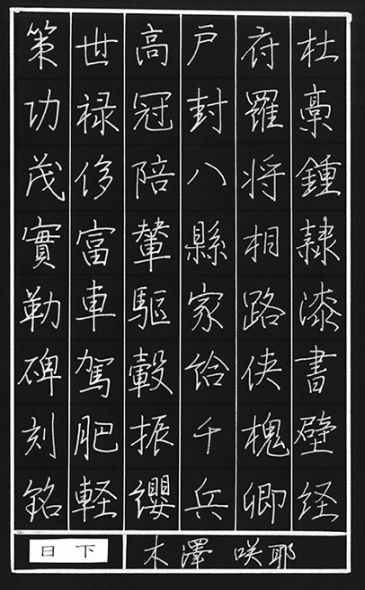 杜稾鍾隷漆書壁経
府羅将相路侠槐卿
戸封八縣家給千兵
高冠陪輦駆轂振纓
世禄侈富車駕肥軽
策功茂實勒碑刻銘
木澤 咲耶
日下